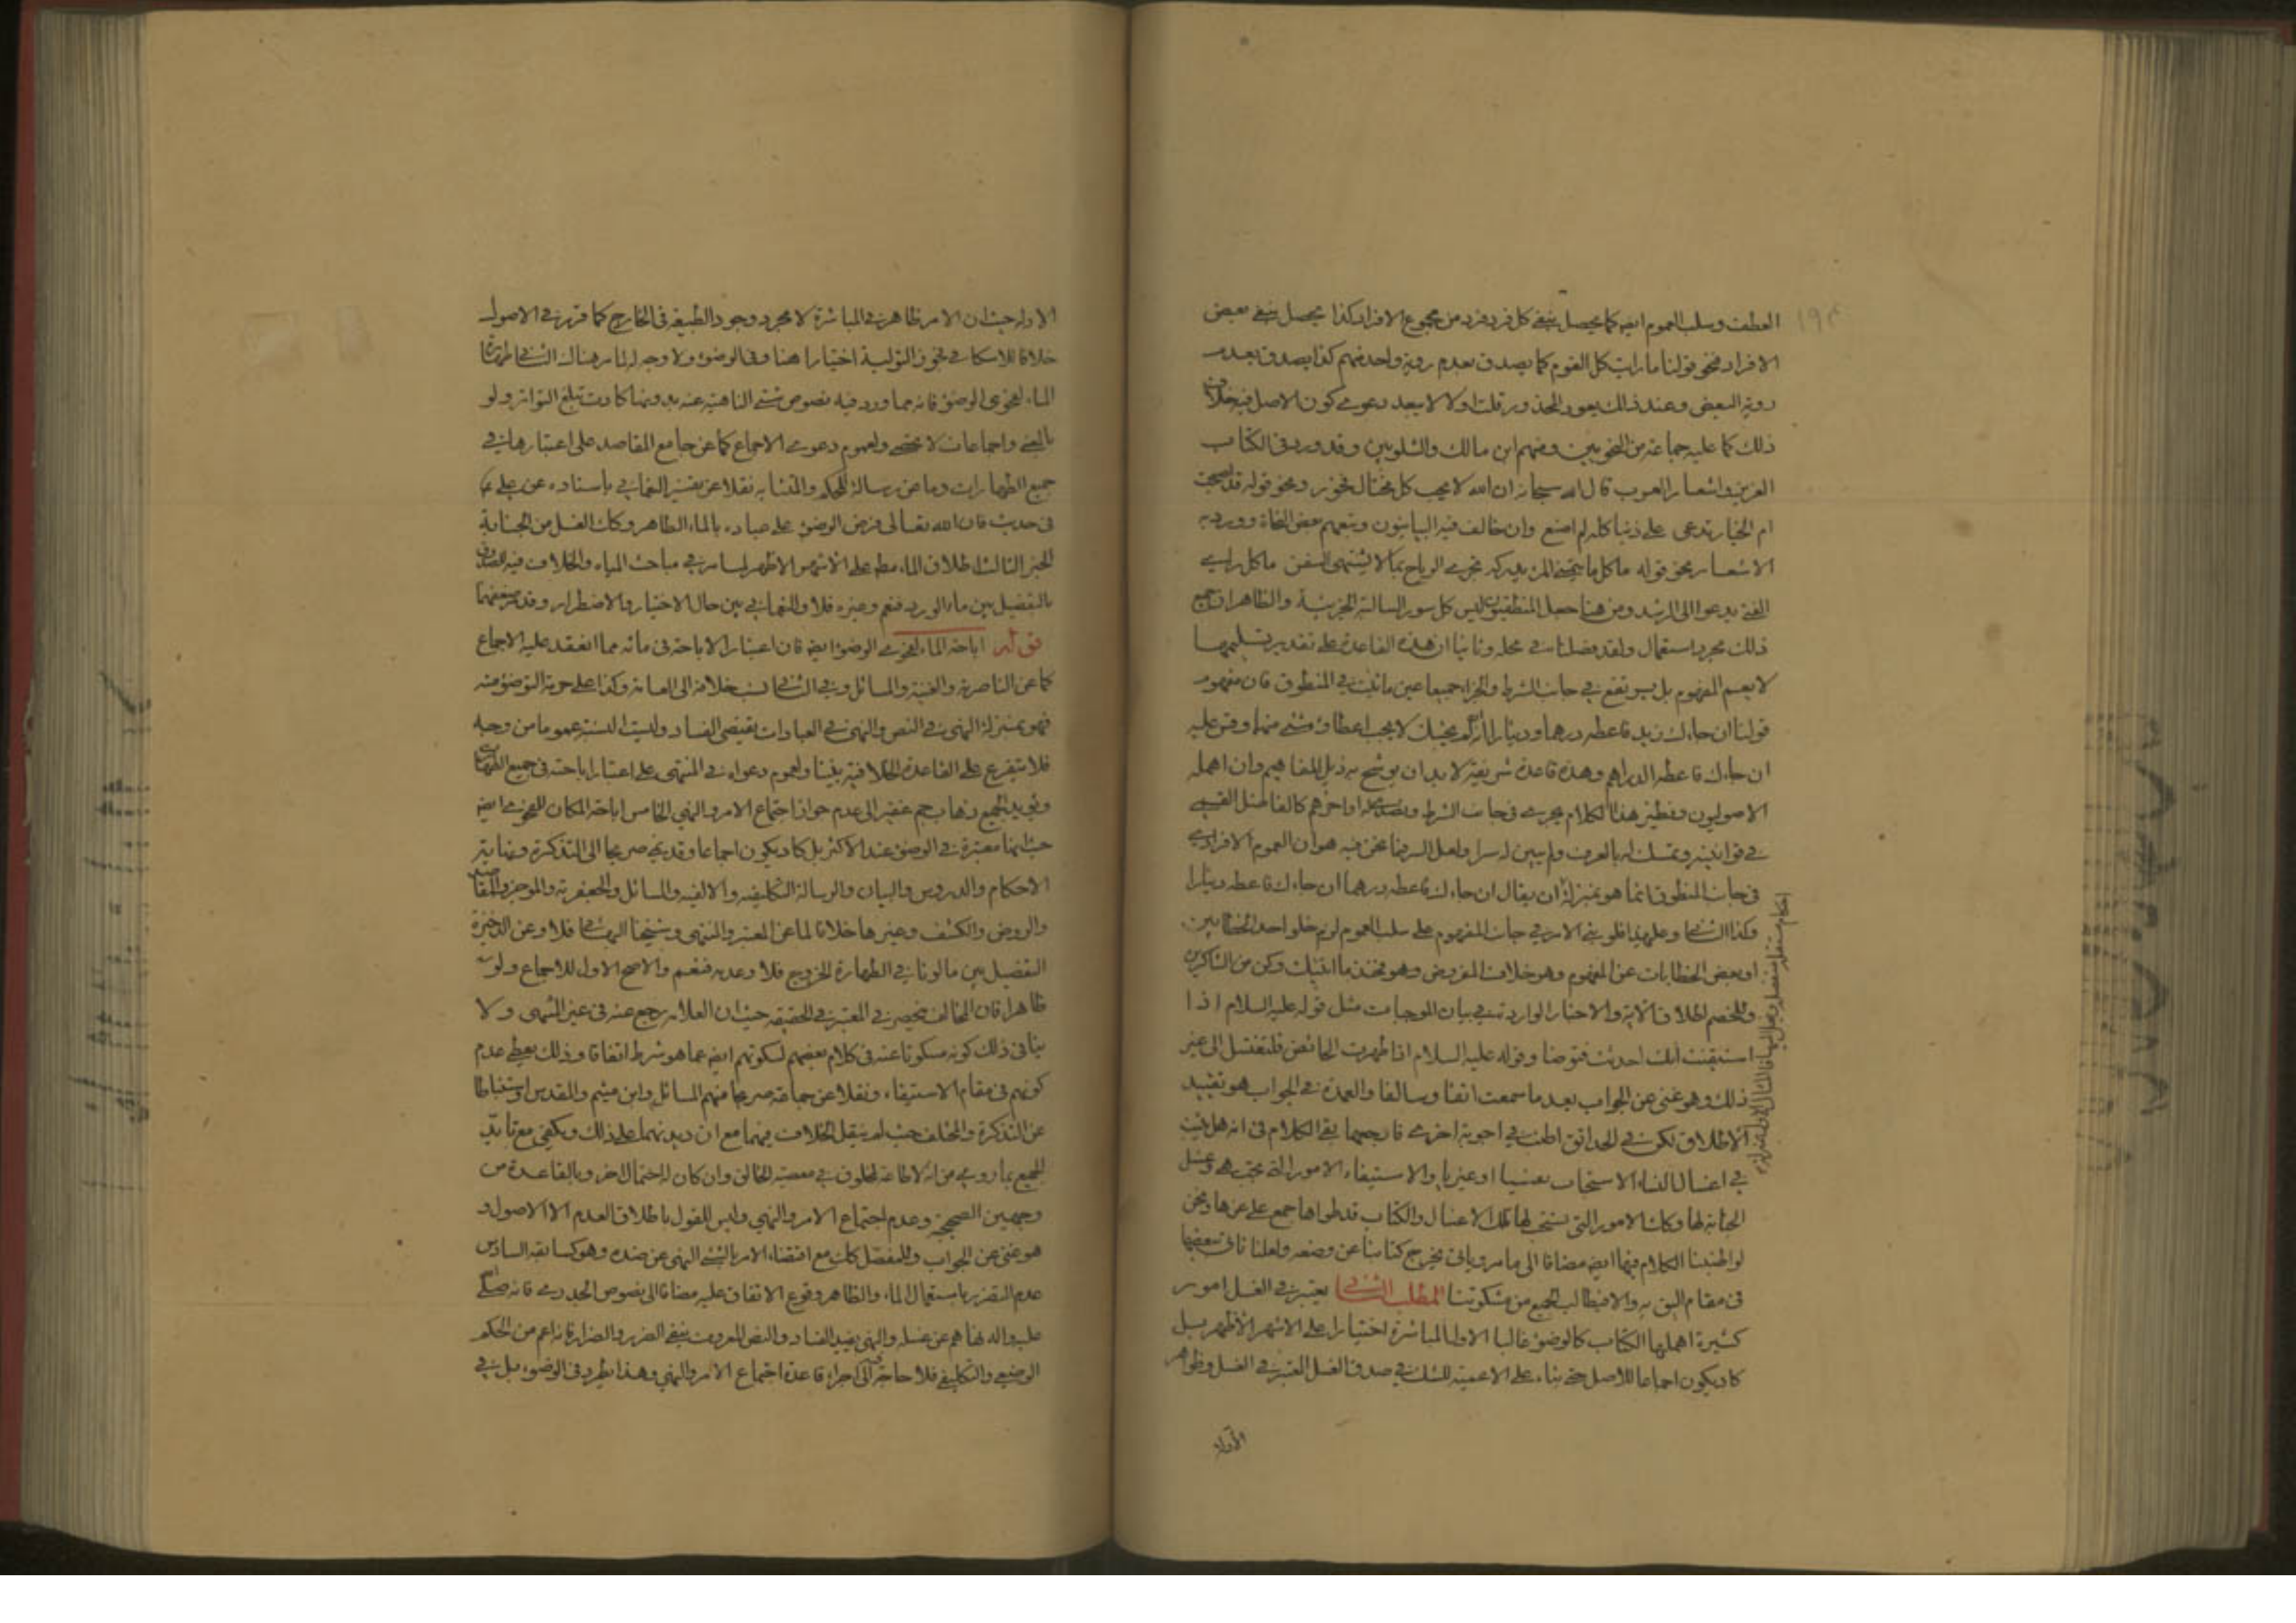 العطف وسلب العموم ايضا كما يحصل بنفي كل فرد فرد من مجموع الافراد كذا يحصل بنفي بعض
الافراد فنحو قولنا ما رايت كل القوم كما يصدق بعدم روية واحد منهم كذا يصدق بعدم
روية البعض وعند ذلك يعود المحذور قلت اولا لا يبعد دعوى كون الاصل فيه خلاف
ذلك كما عليه جماعة من النحويين ومنهم ابن مالك والشلوبين وقد ورد في الكتاب
العزيز واشعار العرب قال الله سبحانه ان الله لا يحب كل مختال فخور ونحو قوله قد اصبحت
ام الخيار تدعي على ذنبا كله لم اصنع وان خالف فيه البيانيون وتبعهم بعض النحاة وورد به
الاشعار نحو قوله ما كل ما يتمنى المرء يدركه تجري الرياح بما لا يشتهي السفن ما كل راى
الفتى يدعو الى الرشد ومن هنا جعل المنطقيون ليس كل سور السالبة الجزئية والظاهر ان جميع
ذلك مجرد استعمال ولقد فصلنا في محله وثانيا ان هذه القاعدة على تقدير تسليمها
لا يعم المفهوم بل يرتفع في جانب الشرط والجزاء جميعا عين ما ثبت في المنطوق فان مفهوم
قولنا ان جاءك زيد فاعطه درهما ودينارا انه لم يجئك لا يجب اعطاؤه شئ منهما وقس عليه
ان جاءك فاعطه الدراهم وهذه قاعدة شريفة لا بد ان يوشح به ذيل المفاهيم وان اهمله
الاصوليون ونظير هذا الكلام يجري في جانب الشرط اواخرهم كالفاضل القمي
في قوانينه وتمسك له بالعرف ولم يبين له سرا ولعل السر فيما نحن فيه هو ان العموم الافرادي
في جانب المنطوق انما هو بمنزلة ان يقال ان جاءك فاعطه درهما ان جاءك فاعطه دينارا
وكذا الشرط وعليهذا فلو بنى الامر في جانب المفهوم على سلب العموم لزم خلو احد الخطابين
او بعض الخطابات عن المفهوم وهو خلاف المفروض وهو فخذ ما اتيتك وكن من الشاكرين
وللخصم اطلاق الاية والاخبار الواردة في بيان الموجبات مثل قوله عليه السلام اذا
استيقنت انك احدثت فتوضأ وقوله عليه السلام اذا طهرت الحائض فلتغتسل الى غير
ذلك وهو غني عن الجواب بعد ما سمعت انفا وسالفا والعمدة في الجواب هو تقييد
الاطلاق لكن في الحدائق اطنب في اجوبة اخرى فارجعها بقي الكلام في انه هل يثبت
في اغسال النساء الاستحباب نفسيا او غيريا والاستيفاء الامور التي يجب هي وغسل
الجنابة لها وكذا الامور التي يستحب لها تلك الاغسال والكتاب قد طواها جمع على غرها ونحن
لو اطنبنا الكلام فيها ايضا مضافا الى ما مر وياتي يخرج كتابنا عن وضعه ولعلنا ناتي ببعضها
في مقام اليق به والا فيطالب الجميع من مشكوتنا المطلب الثاني يعتبر في الغسل امور
كثيرة اهملها الكتاب كالوضوء غالبا الاول المباشرة اختيارا على الاشهر الاظهر بل
كاد يكون اجماعا للاصل حتى بناء على الاعمية للشك في صدق الغسل المعتبر في الغسل وظواهر
الاولة
الاولة حيث ان الامر ظاهر في المباشرة لا مجرد وجود الطبيعة في الخارج كما قرر في الاصول
خلافا للاسكافي فجوز التولية اختيارا هنا وفي الوضوء ولا وجه له لما مر هناك الثاني طهارة
الماء كنحوى الوضوء فانه مما ورد فيه نصوص شتى الناهية عنه بدونها كادت تبلغ التواتر ولو
بالمعنى واجماعات لا تحصى ولعموم دعوى الاجماع كما عن جامع المقاصد على اعتبارها في
جميع الطهارات وما عن رسالة المحكم والمتشابه نقلا عن تفسير النعماني باسناده عن علي ع
في حديث فان الله تعالى فرض الوضوء على عباده بالماء الطاهر وكذا الغسل من الجنابة
الخبر الثالث اطلاق الماء مطلقا على الاشهر الاظهر لما مر في مباحث المياه والخلاف فيه للصدوق
بالتفصيل بين ماء الورد فنعم وغيره فلا والنعماني بين حال الاختيار والاضطرار وقد مر ضعفهما
قوله اباحة الماء كنحوى الوضوء ايضا فان اعتبار الاباحة في مائه مما انعقد عليه الاجماع
كما عن الناصرية والغنية والمسائل وفي نسب خلافه الى العامة وكذا على حرمة التوضؤ منه
فهو بمنزلة النهي في النص والنهي في العبادات يقتضي الفساد وليست النسبة عموما من وجه
فلا يتفرع على القاعدة الخلافية يقينا ولعموم دعواه في المنتهى على اعتبار اباحته في جميع الطهارات
ويؤيد الجميع ذهاب جم غفير الى عدم جواز اجتماع الامر والنهي الخامس اباحة المكان كنحوى ايضا
حيث انها معتبرة في الوضوء عند الاكثر بل كاد يكون اجماعا وقد نسب صريحا الى التذكرة ونهاية
الاحكام والدروس والبيان والرسالة التكليفية والالفية والمسائل والجعفرية والموجز والمقاصد
والروض والكشف وغيرها خلافا لما عن المعتبر والمنتهى وشيخنا البهائي فلا وعن الذخيرة
التفصيل بين ما لو نافى الطهارة الخروج فلا وعدمه فنعم والاصح الاول للاجماع ولو
ظاهرا فان المخالف منحصر في المعتبر في الحقيقة حيث ان العلامة رجع عنه في غير المنتهى ولا
ينافي ذلك كونه مسكوتا عنه في كلام بعضهم لسكوتهم ايضا عما هو شرط اتفاقا وذلك يعطي عدم
كونهم في مقام الاستيفاء ونقلا عن جماعة صريحا منهم المسائل وابن ميثم والمقدس واستنباطا
عن التذكرة والمختلف حيث لم ينقل الخلاف فيهما مع ان ديدنهما على ذلك ويكفي مع تاييد
الجميع بما روي من انه لا طاعة لمخلوق في معصية الخالق وان كان له احتمال اخر وبالقاعدة من
وجهين الصحيحة وعدم اجتماع الامر والنهي وليس للقول باطلاق العدم الا الاصول و
هو غني عن الجواب وللمفصل كذا مع اقتضاء الامر بالشئ النهي عن ضده وهو كسابقه السادس
عدم التضرر باستعمال الماء والظاهر وقوع الاتفاق عليه مضافا الى نصوص الجدري فانه صلى
عليه واله نهاهم عن غسله والنهي يفيد الفساد والنص المعروف بنفي الضرر والضرار فانه اعم من الحكم
الوضعي والتكليفي فلا حاجة الى اجراء قاعدة اجتماع الامر والنهي وهذا يطرد في الوضوء بل في